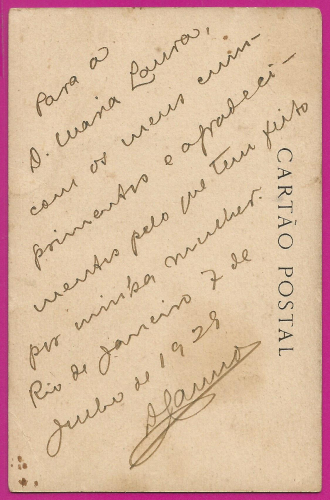 Para a
D. Maria Laura,
com os meus cum-
primentos e agradeci-
mentos pelo que tem feito
por minha mulher.
Rio de Janeiro 7 de
Junho de 1929
CARTÃO POSTAL